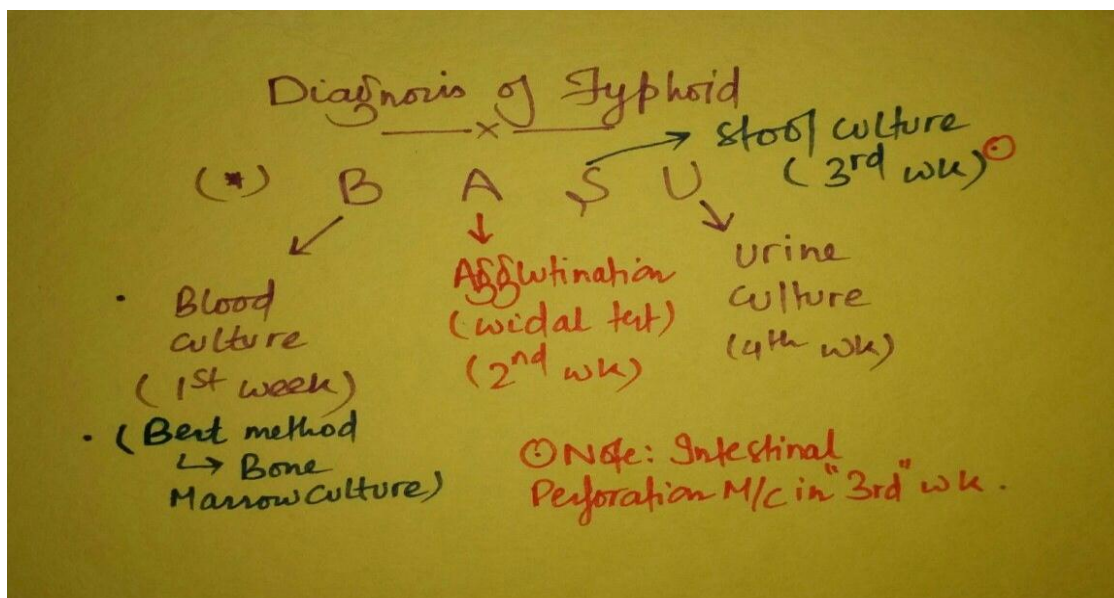 Diagnosis of Typhoid
(*) B A S U
→ stool culture
(3rd wk)
Blood
culture
(1st week)
(Best method
↳ Bone
Marrow culture)
Agglutination
(widal test)
(2nd wk)
urine
culture
(4th wk)
Note: Intestinal
Perforation M/c in "3rd" wk.